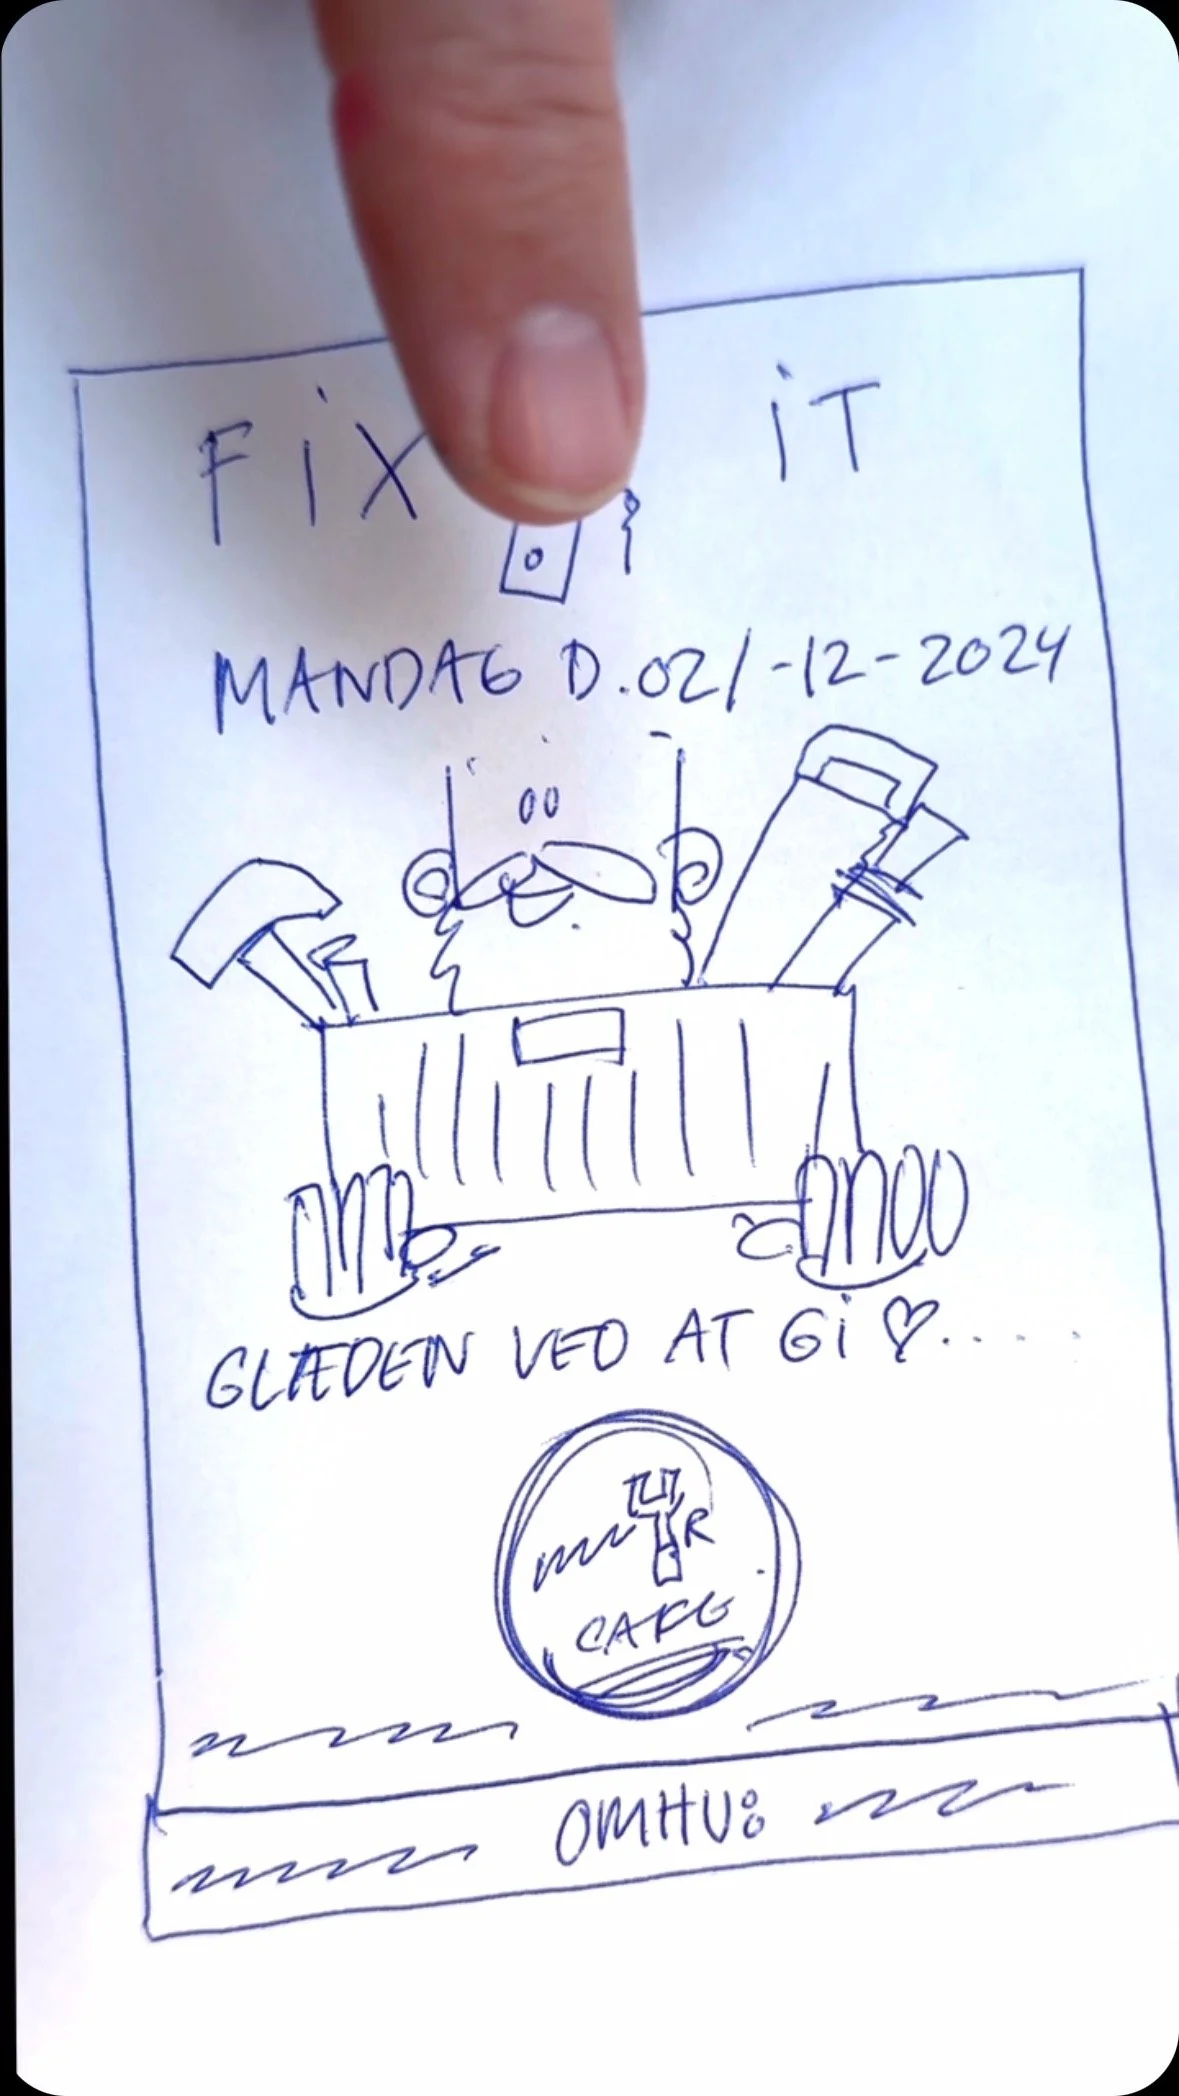 FiX iT
MANDAG D.02/-12-2024
GLÆDEN VED AT Gi ♡.....
R
CAFE
OMHU: